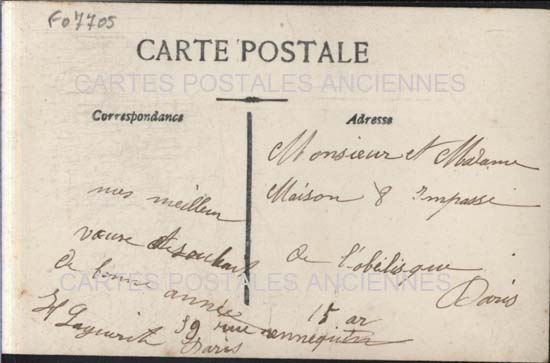 F07705
CARTE POSTALE
CARTES POSTALES ANCIENNES
Correspondance
Adresse
Monsieur et Madame
Maison 8 Impasse
de l'obélisque
15 ar Paris
nos meilleur
vœux et souhait
de bonne année
39 rue
Paris
CARTES POSTALES ANCIENNES